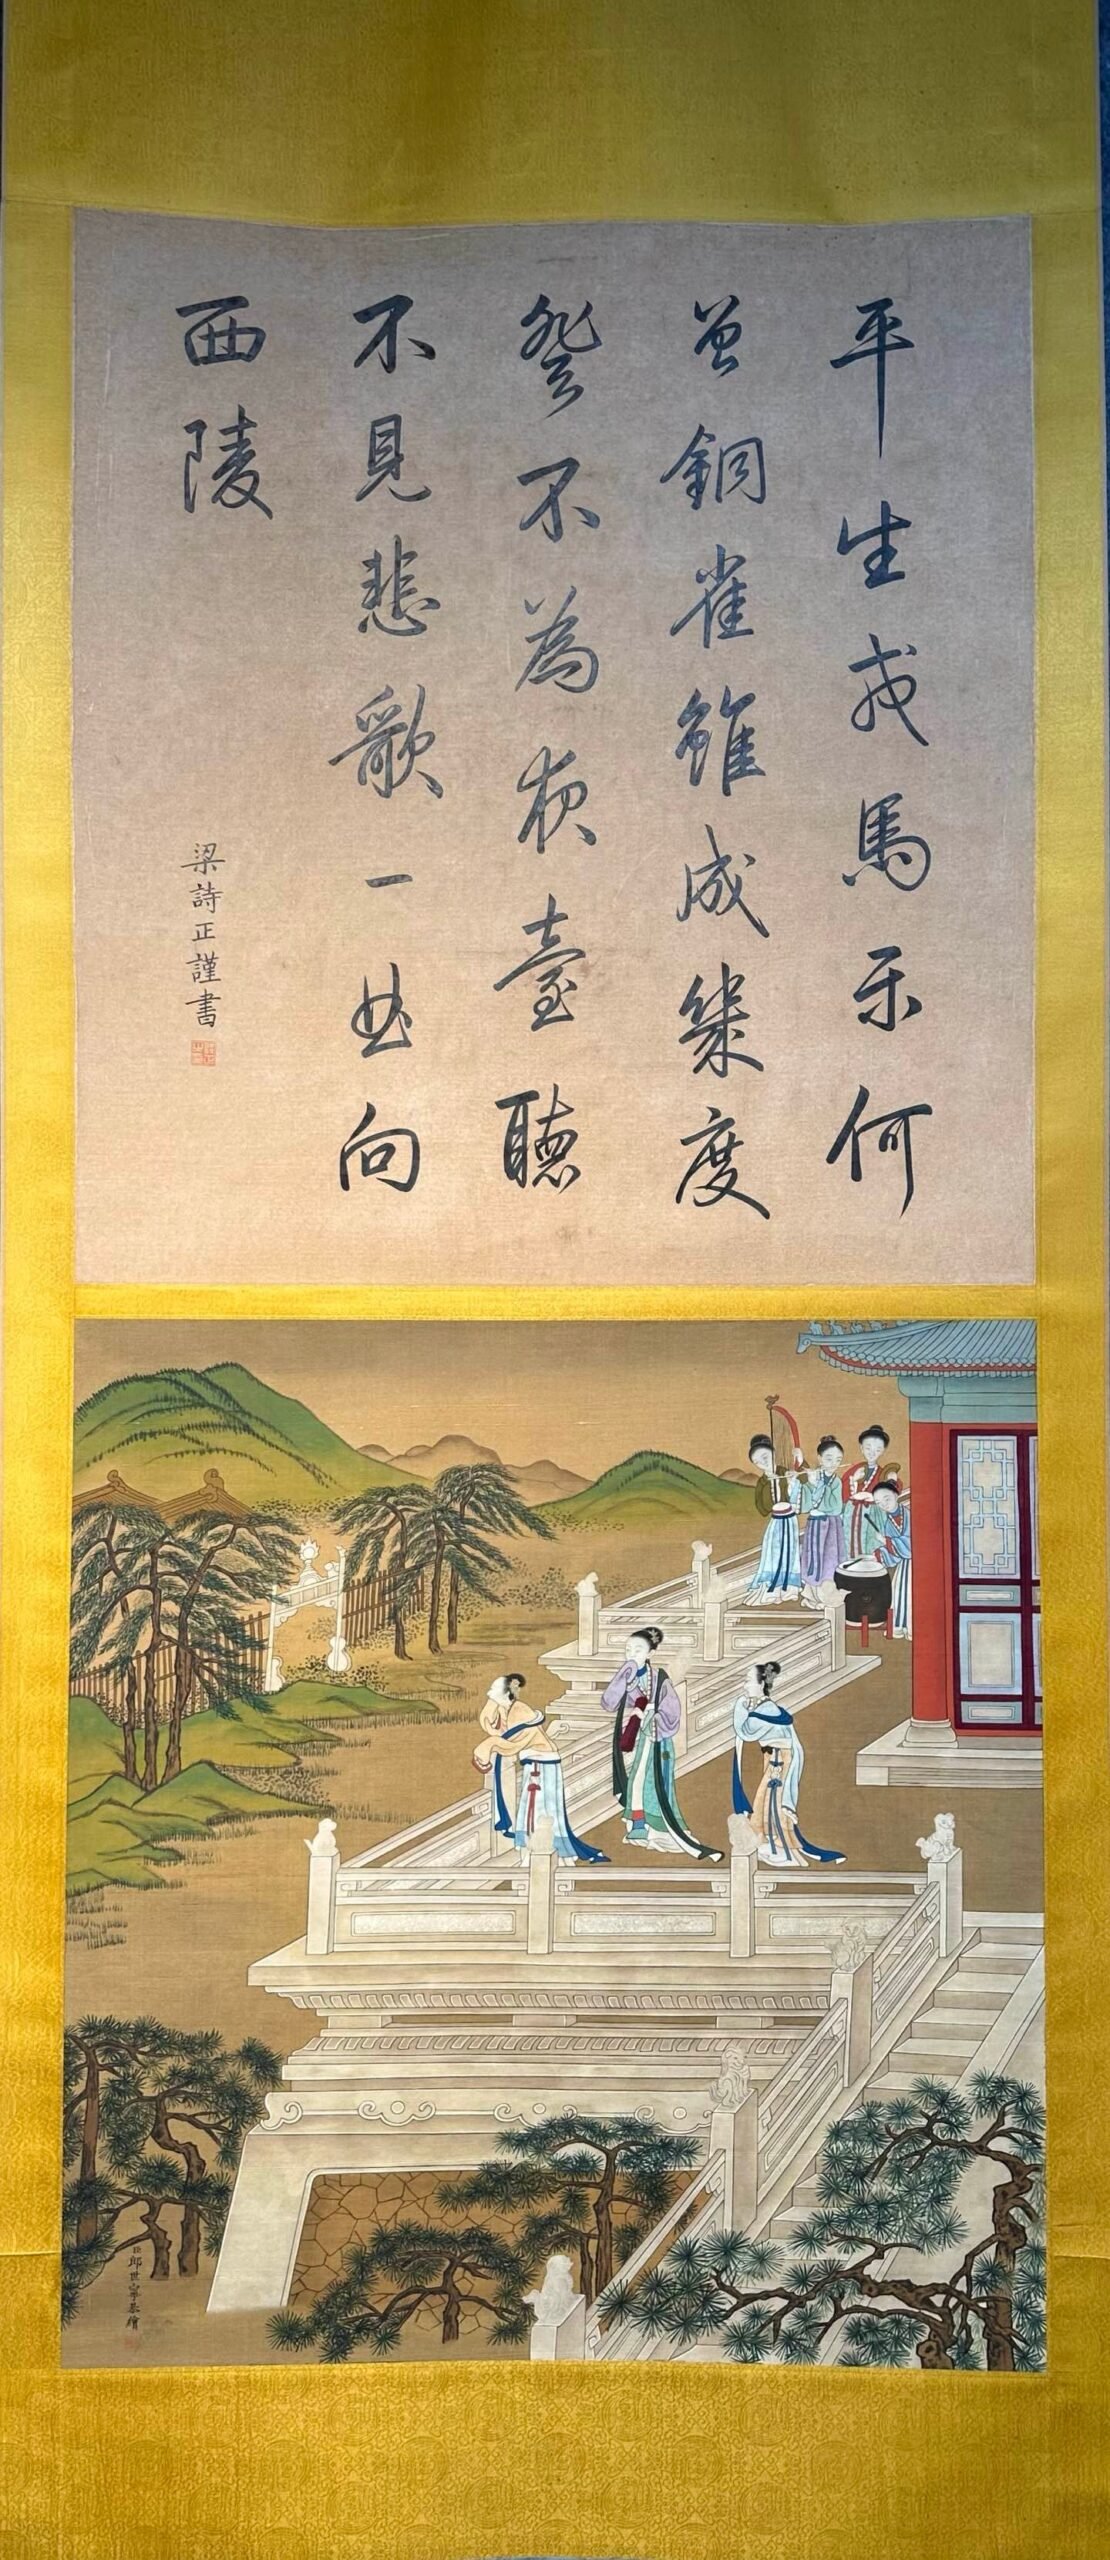 平生戎馬乐何
曾銅雀雖成幾度
登不為夜臺聽
不見悲歌一曲向
西陵
梁詩正謹書
臣郎世寧恭繪